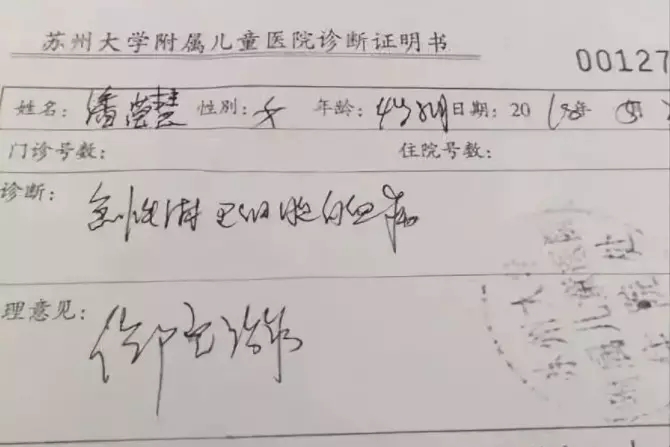 苏州大学附属儿童医院诊断证明书
00127
姓名: 潘莹慧 性别: 女 年龄: 4岁 日期: 2018年
门诊号数: 住院号数:
诊断: 急性淋巴细胞白血病
理意见: 住院治疗
苏州大
附属儿童医院